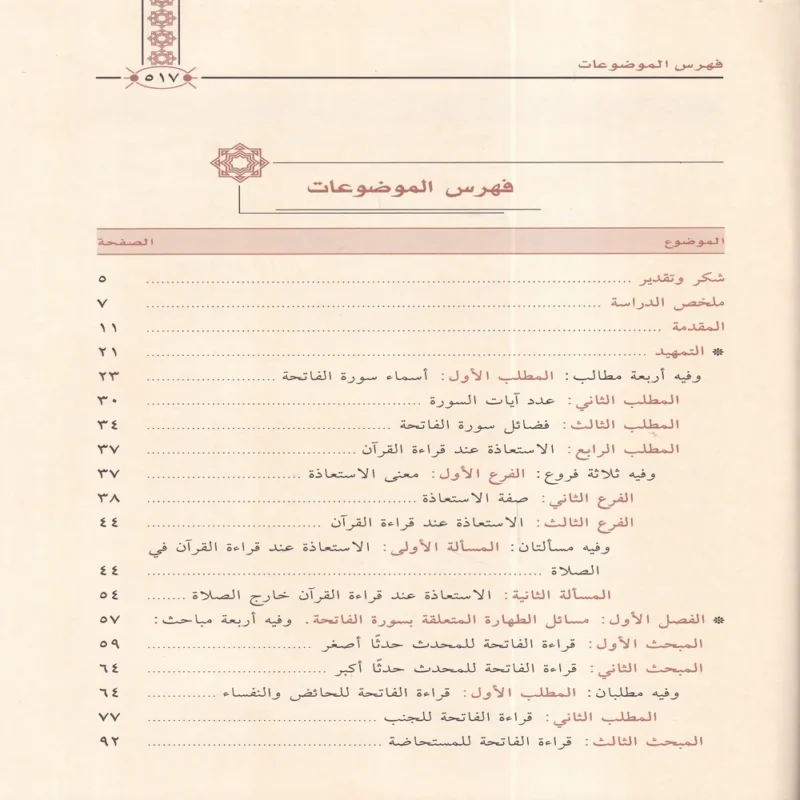 فهرس الموضوعات
٥١٧
فهرس الموضوعات
الموضوع الصفحة
شكر وتقدير ................ ٥
ملخص الدراسة ................ ٧
المقدمة ................ ١١
* التمهيد ................ ٢١
وفيه أربعة مطالب: المطلب الأول: أسماء سورة الفاتحة ................ ٢٣
المطلب الثاني: عدد آيات السورة ................ ٣٠
المطلب الثالث: فضائل سورة الفاتحة ................ ٣٤
المطلب الرابع: الاستعاذة عند قراءة القرآن ................ ٣٧
وفيه ثلاثة فروع: الفرع الأول: معنى الاستعاذة ................ ٣٧
الفرع الثاني: صفة الاستعاذة ................ ٣٨
الفرع الثالث: الاستعاذة عند قراءة القرآن ................ ٤٤
وفيه مسألتان: المسألة الأولى: الاستعاذة عند قراءة القرآن في
الصلاة ................ ٤٤
المسألة الثانية: الاستعاذة عند قراءة القرآن خارج الصلاة ........ ٥٤
* الفصل الأول: مسائل الطهارة المتعلقة بسورة الفاتحة. وفيه أربعة مباحث: ٥٧
المبحث الأول: قراءة الفاتحة للمحدث حدثًا أصغر ................ ٥٩
المبحث الثاني: قراءة الفاتحة للمحدث حدثًا أكبر ................ ٦٤
وفيه مطلبان: المطلب الأول: قراءة الفاتحة للحائض والنفساء ............ ٦٤
المطلب الثاني: قراءة الفاتحة للجنب ................ ٧٧
المبحث الثالث: قراءة الفاتحة للمستحاضة ................ ٩٢